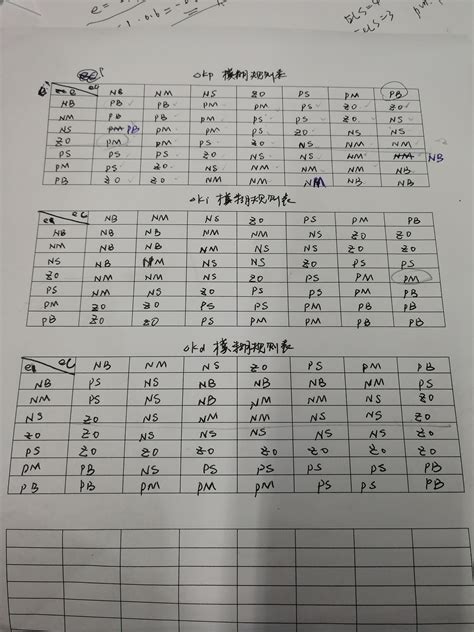 e =
-1·0.6 = -0.
ECS=4
ECS=3
Δkp 模糊规则表
e ec NB NM NS ZO PS PM PB
NB PB PB PM PM PS ZO ZO
NM PB PB PM PS PS ZO
NS PB PM PM PS ZO NS NS
ZO PM PM PS ZO NS NM NM
PS PS PS ZO NS NS NM NB
PM PS ZO NS NM NM NM NB
PB ZO ZO NM NM NM NB NB
Δki 模糊规则表
e ec NB NM NS ZO PS PM PB
NB NB NB NM NM NS ZO ZO
NM NB NB NM NS NS ZO ZO
NS NB NM NS NS ZO PS PS
ZO NM NM NS ZO PS PM PM
PS NM NS ZO PS PS PM PB
PM ZO ZO PS PS PM PB PB
PB ZO ZO PS PM PM PB PB
Δkd 模糊规则表
e ec NB NM NS ZO PS PM PB
NB PS NS NB NB NB NM PS
NM PS NS NB NM NM NS ZO
NS ZO NS NM NM NS NS ZO
ZO ZO NS NS NS NS NS ZO
PS ZO ZO ZO ZO ZO ZO ZO
PM PB NS PS PS PS PS PB
PB PB PM PM PM PS PS PB